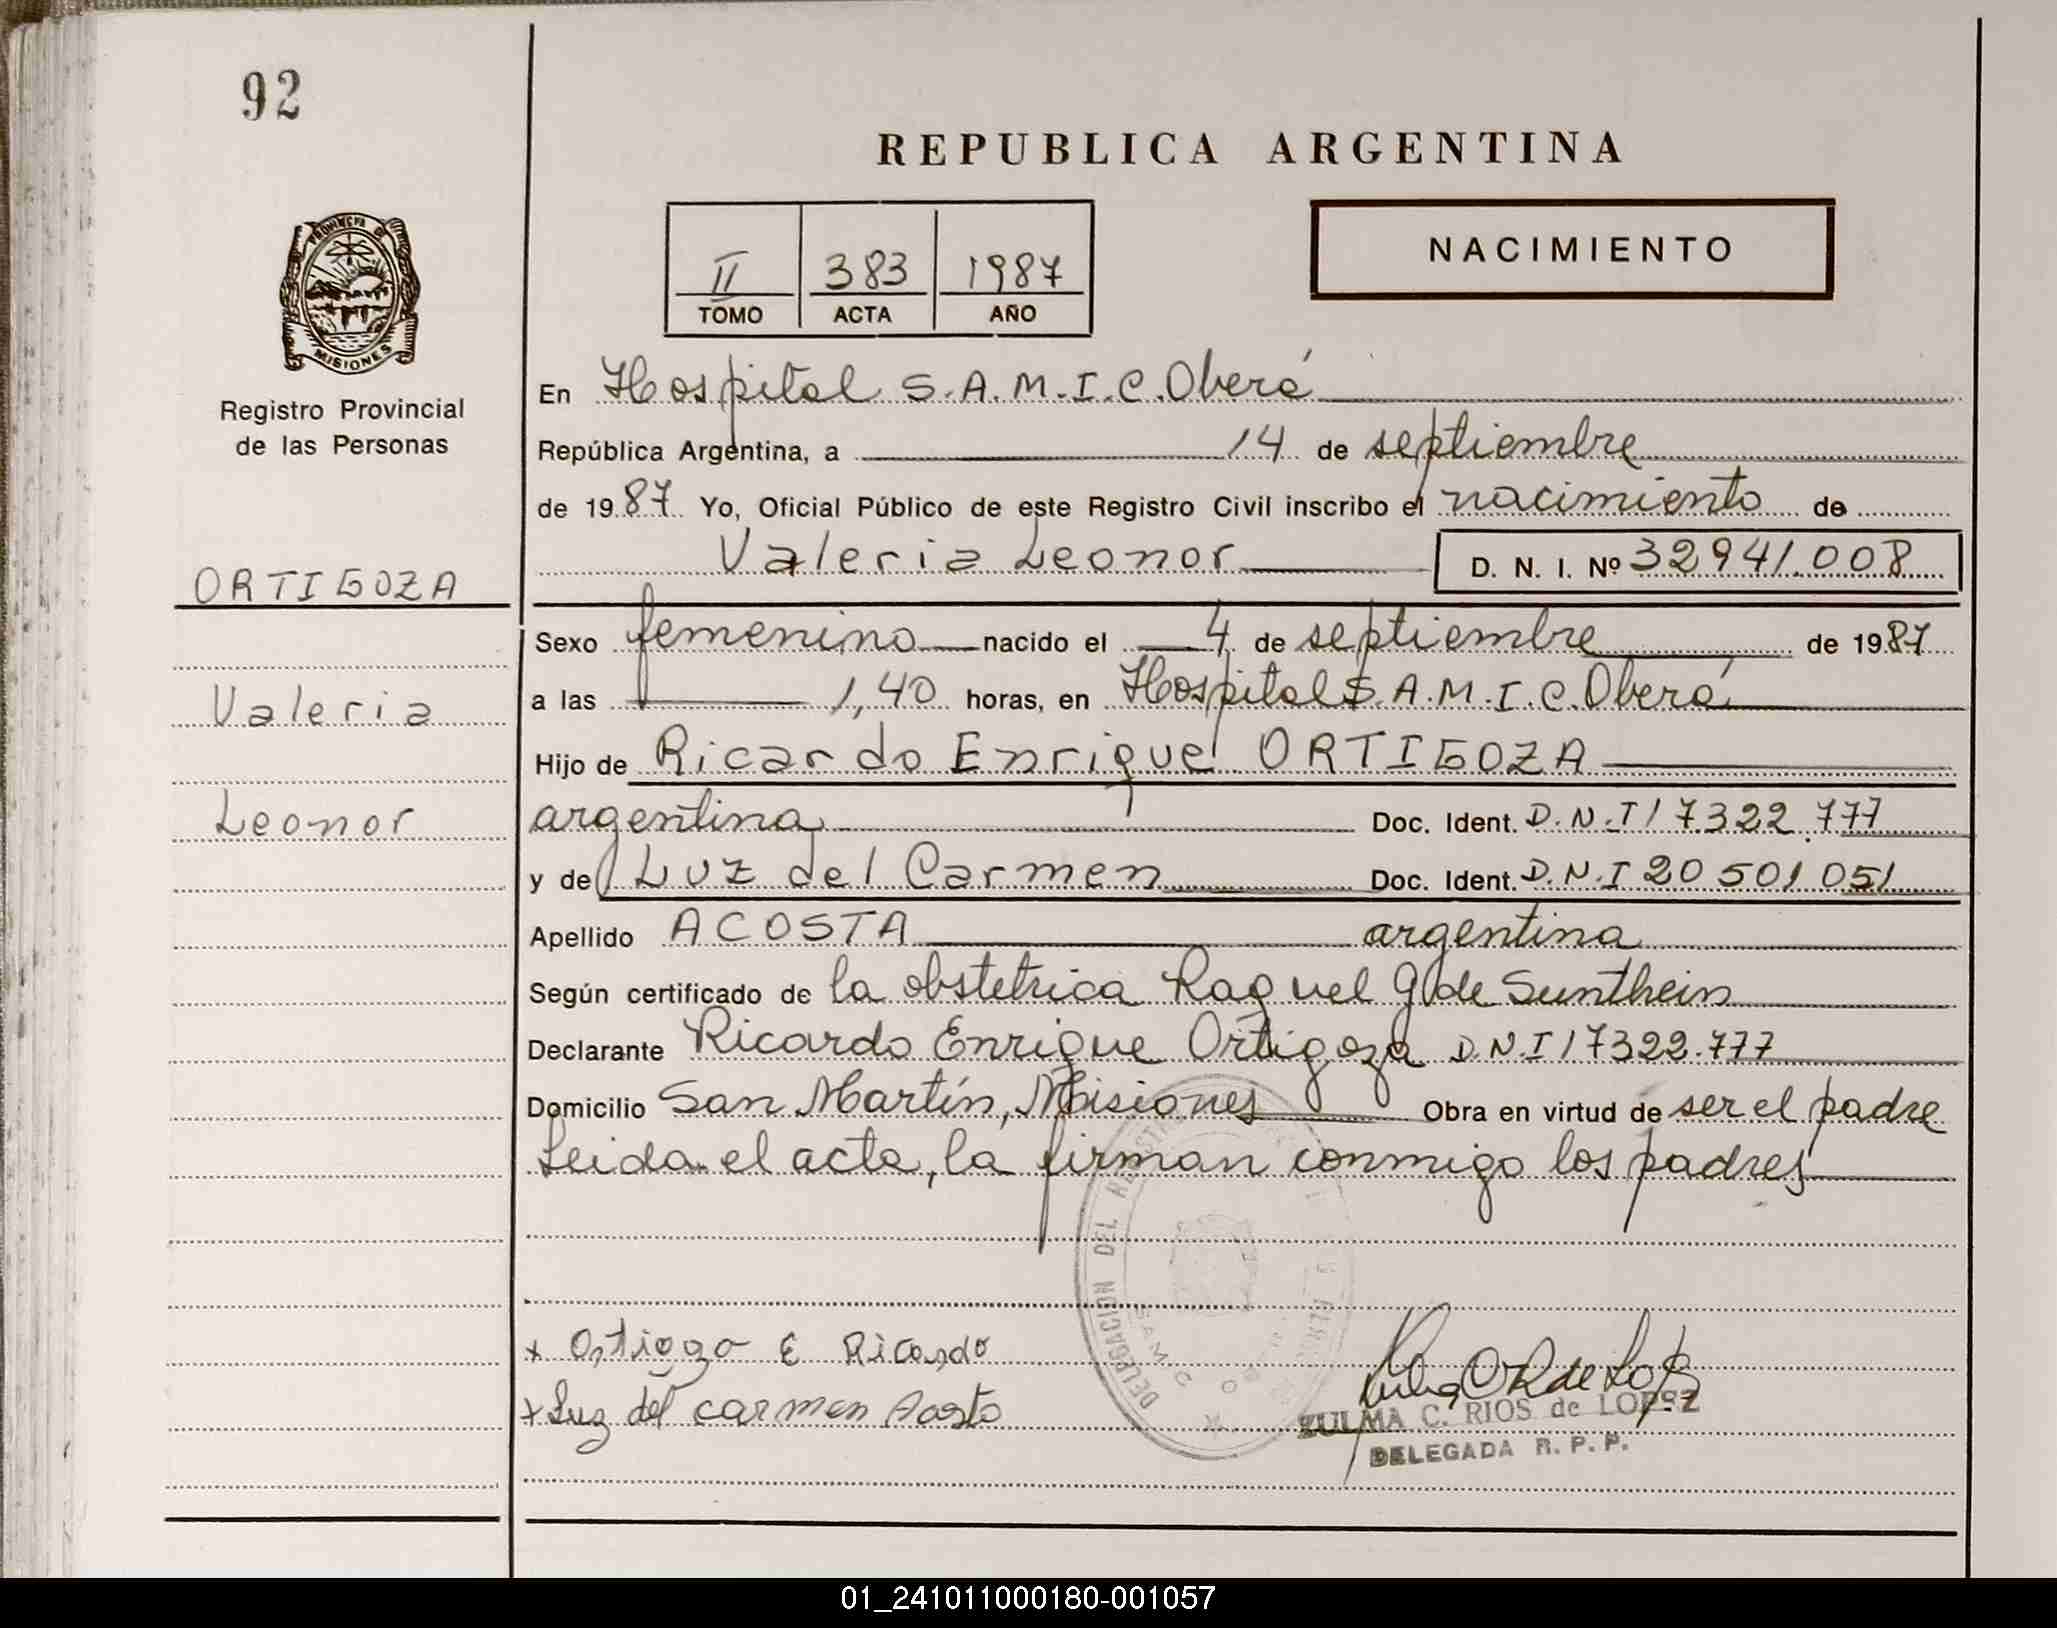 92
REPUBLICA ARGENTINA
NACIMIENTO
II 383 1987
TOMO ACTA AÑO
PROVINCIA DE
MISIONES
Registro Provincial
de las Personas
ORTIGOZA
Valeria
Leonor
En Hospital S.A.M.I.C. Oberá
República Argentina, a 14 de septiembre
de 1987 Yo, Oficial Público de este Registro Civil inscribo el nacimiento de
Valeria Leonor D. N. I. Nº 32941.008
Sexo femenino nacido el 4 de septiembre de 1987
a las 1,40 horas, en Hospital S.A.M.I.C. Oberá
Hijo de Ricardo Enrique ORTIGOZA
argentina Doc. Ident. D.N.I 17322.777
y de Luz del Carmen Doc. Ident. D.N.I 20 501 051
Apellido ACOSTA argentina
Según certificado de la obstetrica Raquel G de Sunthein
Declarante Ricardo Enrique Ortigoza D.N.I 17322.777
Domicilio San Martín, Misiones Obra en virtud de ser el padre
Leida el acta, la firman conmigo los padres
DELEGACION DEL
x Ortiogza E Ricardo
x Luz del carmen Acosta
ZULMA C. RIOS de LOPEZ
DELEGADA R. P. P.
01_241011000180-001057